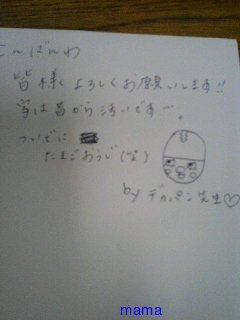 こんばんわ
皆様よろしくお願いします!!
字は昔から汚いです…。
ついでに
たまごおうじ(笑)
by デカパン先生♡
mama